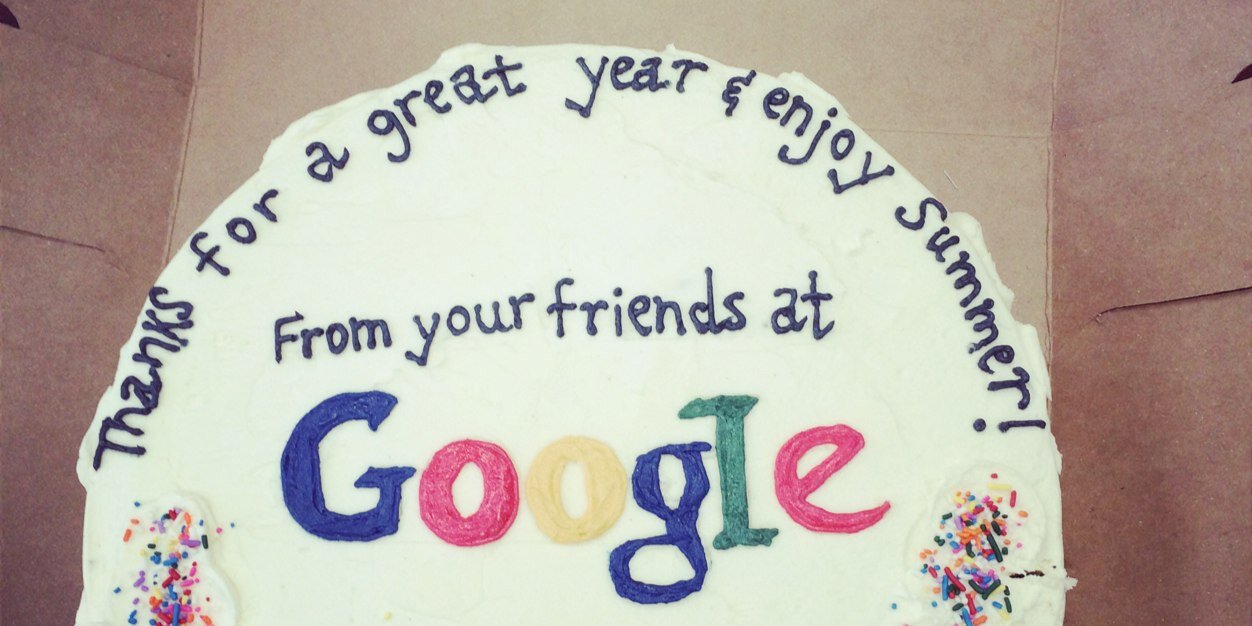 Thanks for a great year & enjoy summer!
From your friends at
Google